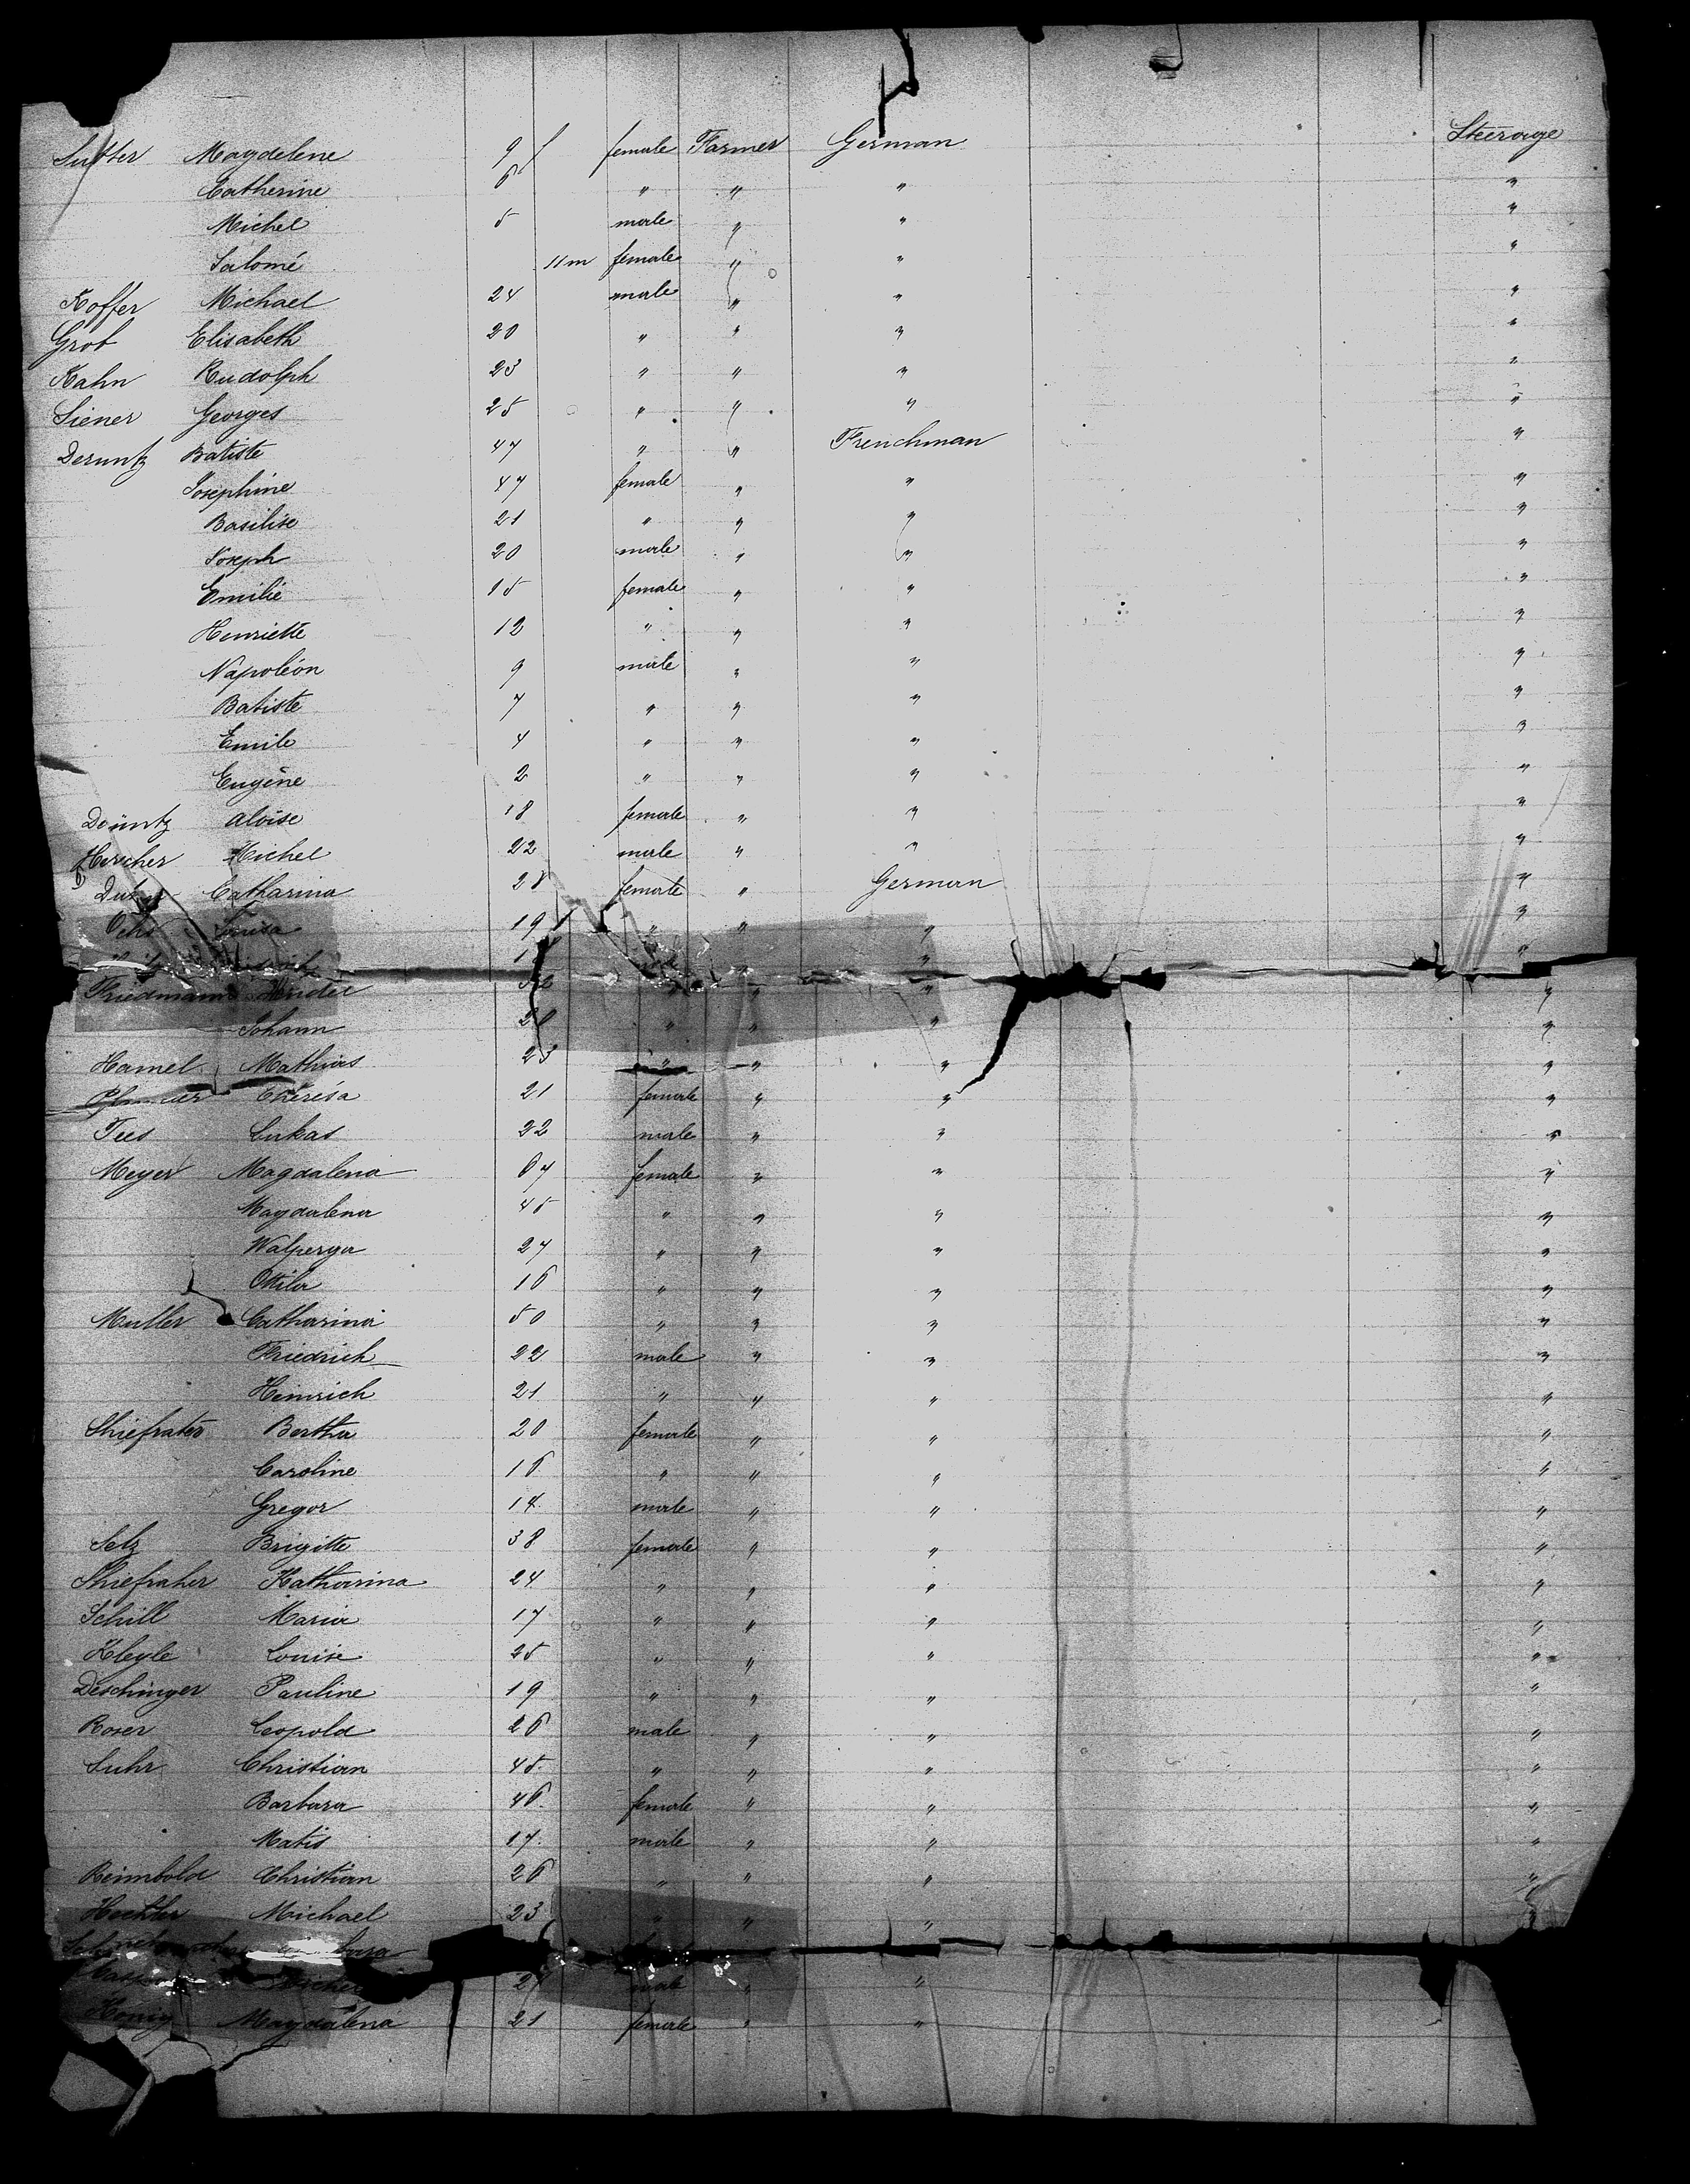 Sutter Magdelene 9 female Farmer German Steerage
Catherine 6 " " " "
Michel 5 male " " "
Salomé 11m female " " "
Koffer Michael 24 male " " "
Grob Elisabeth 20 " " " "
Kahn Rudolph 23 " " " "
Siener Georges 25 " " " "
Deruntz Batiste 47 " " Frenchman "
Josephine 47 female " " "
Basilise 21 " " " "
Joseph 20 male " " "
Emilie 15 female " " "
Henriette 12 " " " "
Napoléon 9 male " " "
Batiste 7 " " " "
Emile 4 " " " "
Eugène 2 " " " "
Deruntz Aloise 18 female " " "
Hercher Michel 22 male " " "
Catharina 28 female " German "
Ochs Louisa 19 " " " "
" " "
Friedmann " " " "
Johann 20 " " " "
Hamel Mathias 23 " " " "
Thérésa 21 female " " "
Tees Lukas 22 male " " "
Meyer Magdalena 67 female " " "
Magdalena 45 " " " "
Walperga 27 " " " "
Otilia 16 " " " "
Muller Catharina 50 " " " "
Friedrich 22 male " " "
Heinrich 21 " " " "
Shiefrater Bertha 20 female " " "
Caroline 16 " " " "
Gregor 14 male " " "
Selz Brigitte 38 female " " "
Shiefraher Katharina 24 " " " "
Schill Maria 17 " " " "
Kleyle Louise 25 " " " "
Deschinger Pauline 19 " " " "
Roser Leopold 26 male " " "
Suhr Christian 45 " " " "
Barbara 46 female " " "
Matis 17 male " " "
Reimbold Christian 26 " " " "
Hechler Michael 23 " " " "
male " "
König Magdalena 21 female " "